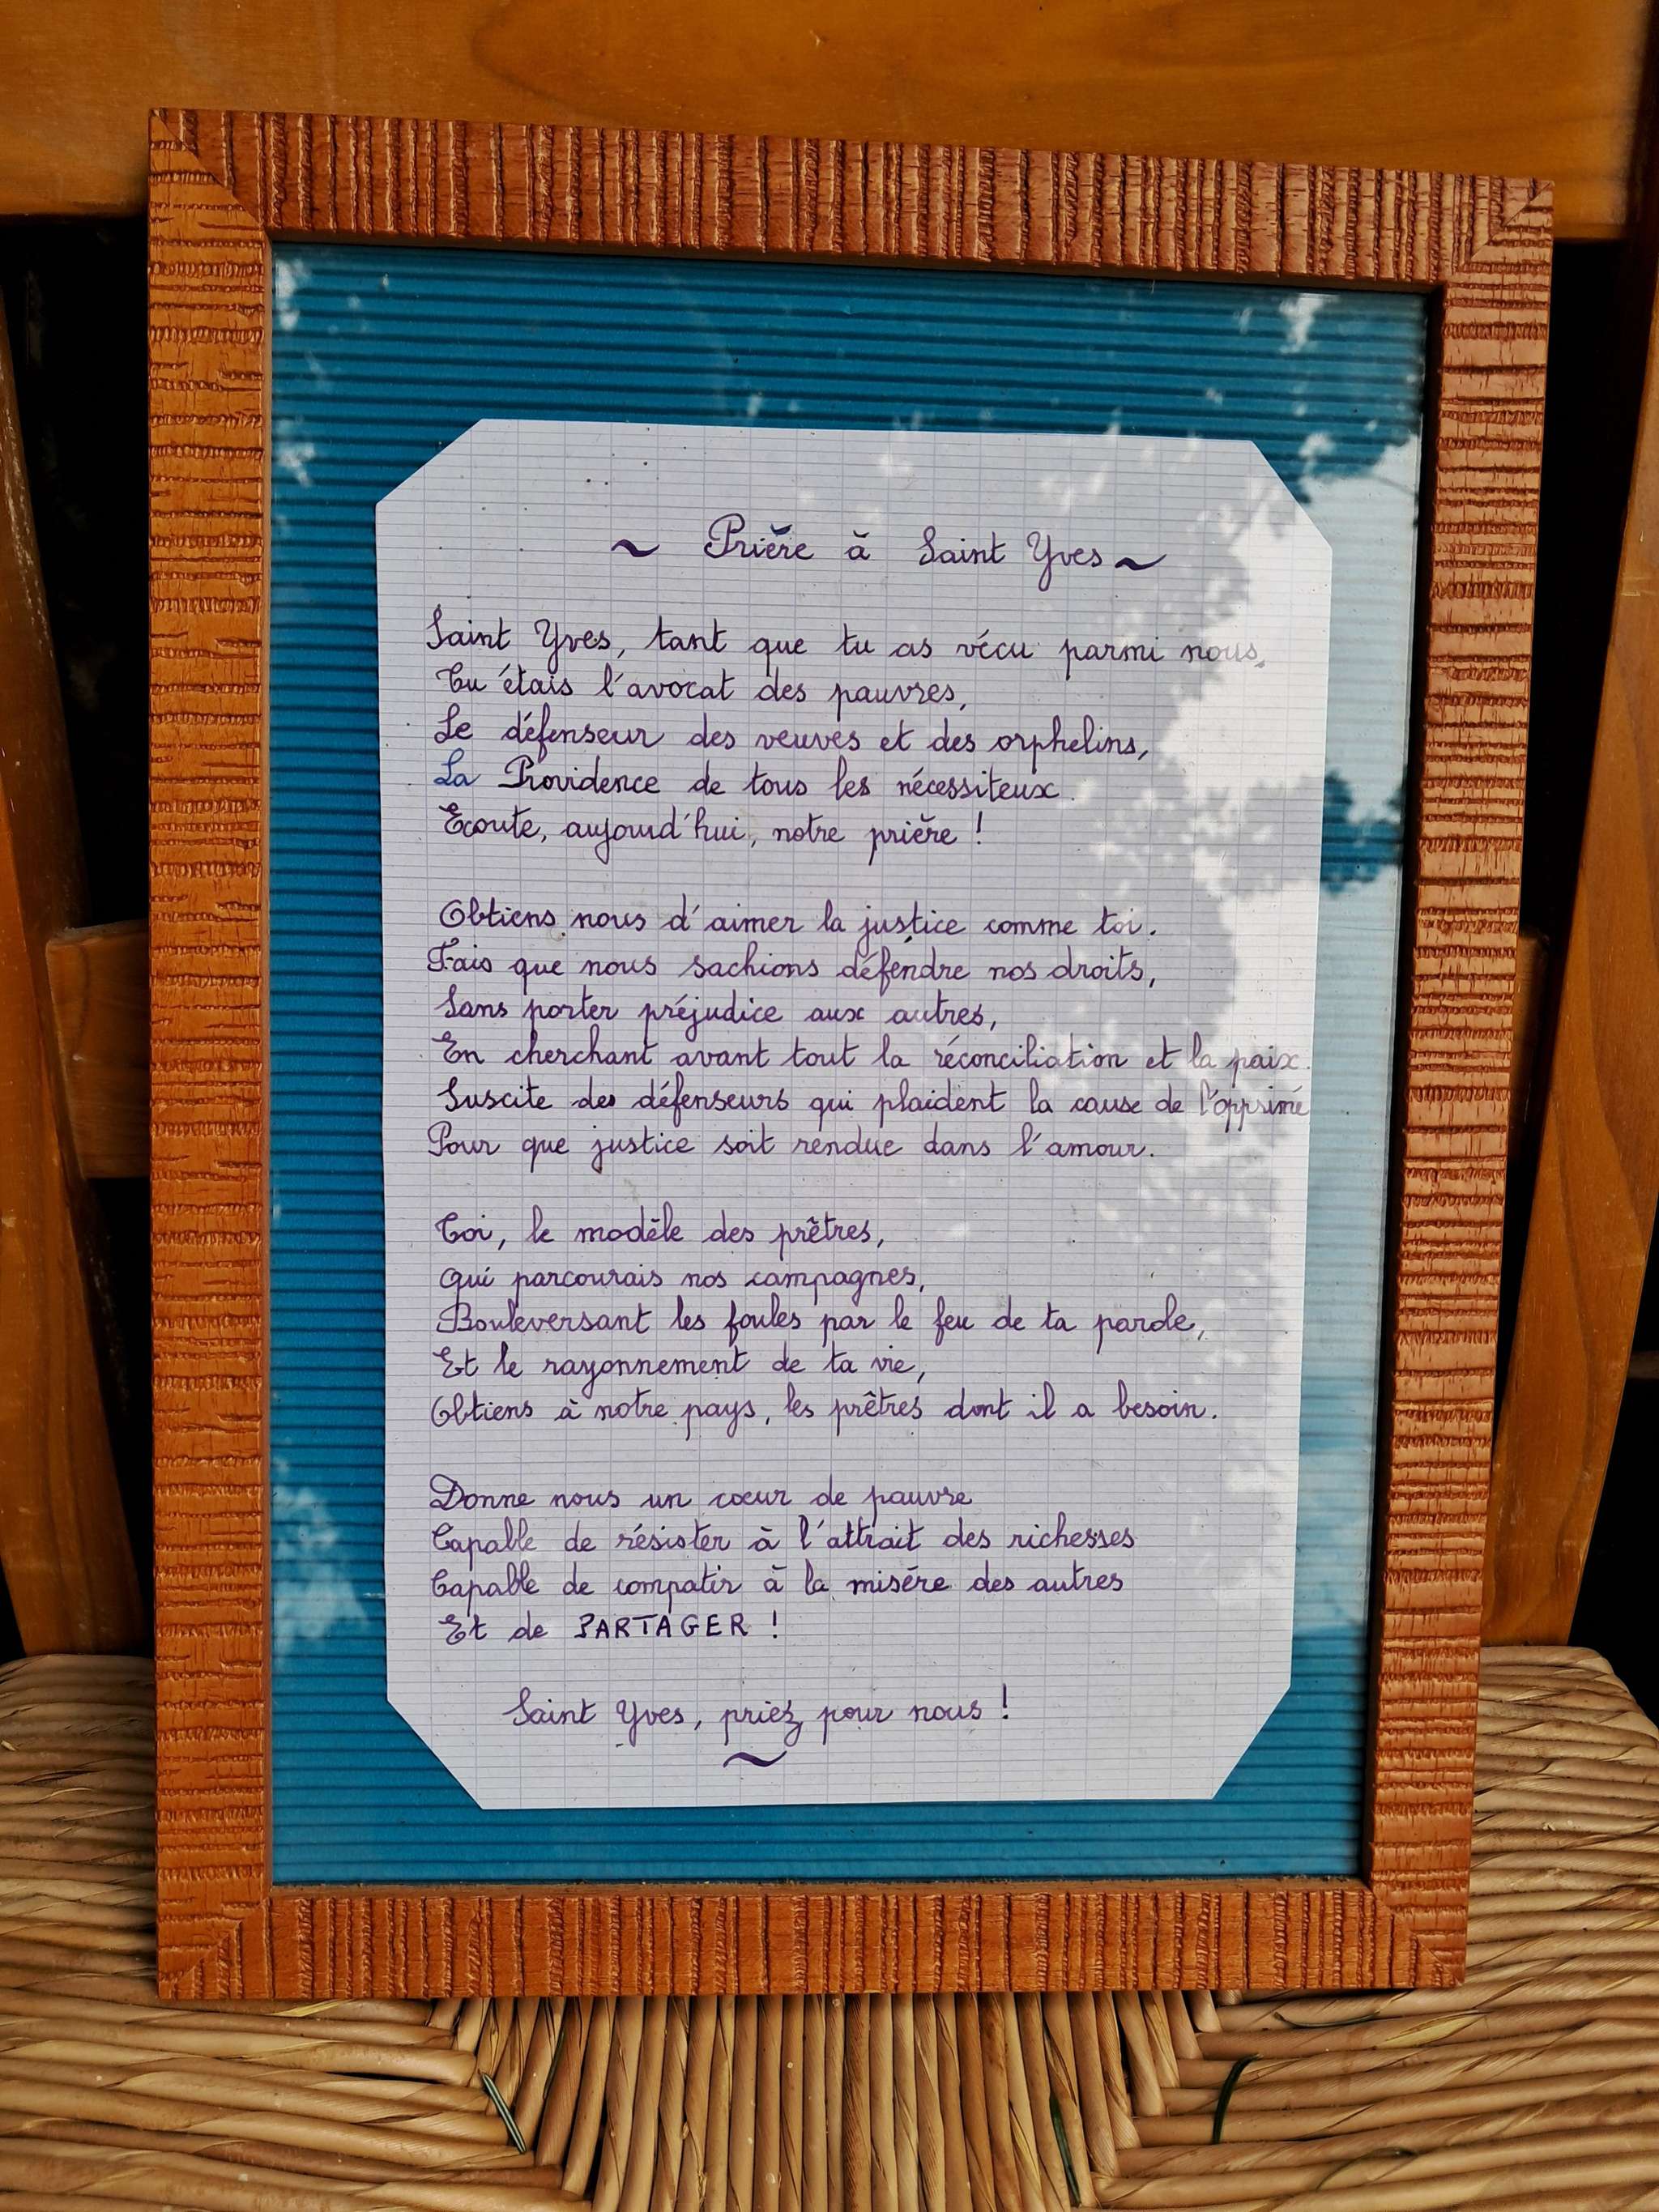 ~ Prière à Saint Yves ~
Saint Yves, tant que tu as vécu parmi nous,
Tu étais l'avocat des pauvres,
Le défenseur des veuves et des orphelins,
La Providence de tous les nécessiteux.
Ecoute, aujourd'hui, notre prière !
Obtiens nous d'aimer la justice comme toi.
Fais que nous sachions défendre nos droits,
Sans porter préjudice aux autres,
En cherchant avant tout la réconciliation et la paix.
Suscite des défenseurs qui plaident la cause de l'opprimé
Pour que justice soit rendue dans l'amour.
Toi, le modèle des prêtres,
Qui parcourais nos campagnes,
Bouleversant les foules par le feu de ta parole,
Et le rayonnement de ta vie,
Obtiens à notre pays, les prêtres dont il a besoin.
Donne nous un cœur de pauvre
Capable de résister à l'attrait des richesses
Capable de compatir à la misère des autres
Et de PARTAGER !
Saint Yves, priez pour nous !
~